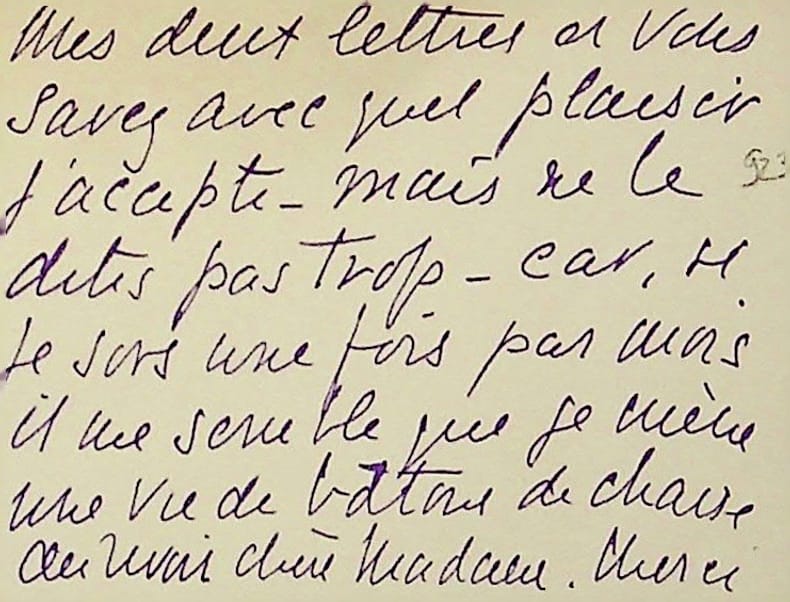 mes deux lettres et vous
savez avec quel plaisir
j'accepte - mais ne le
dites pas trop - car, si
je sors une fois par mois
il me semble que je mène
une vie de bâtons de chaise
au revoir chère Madame. Merci